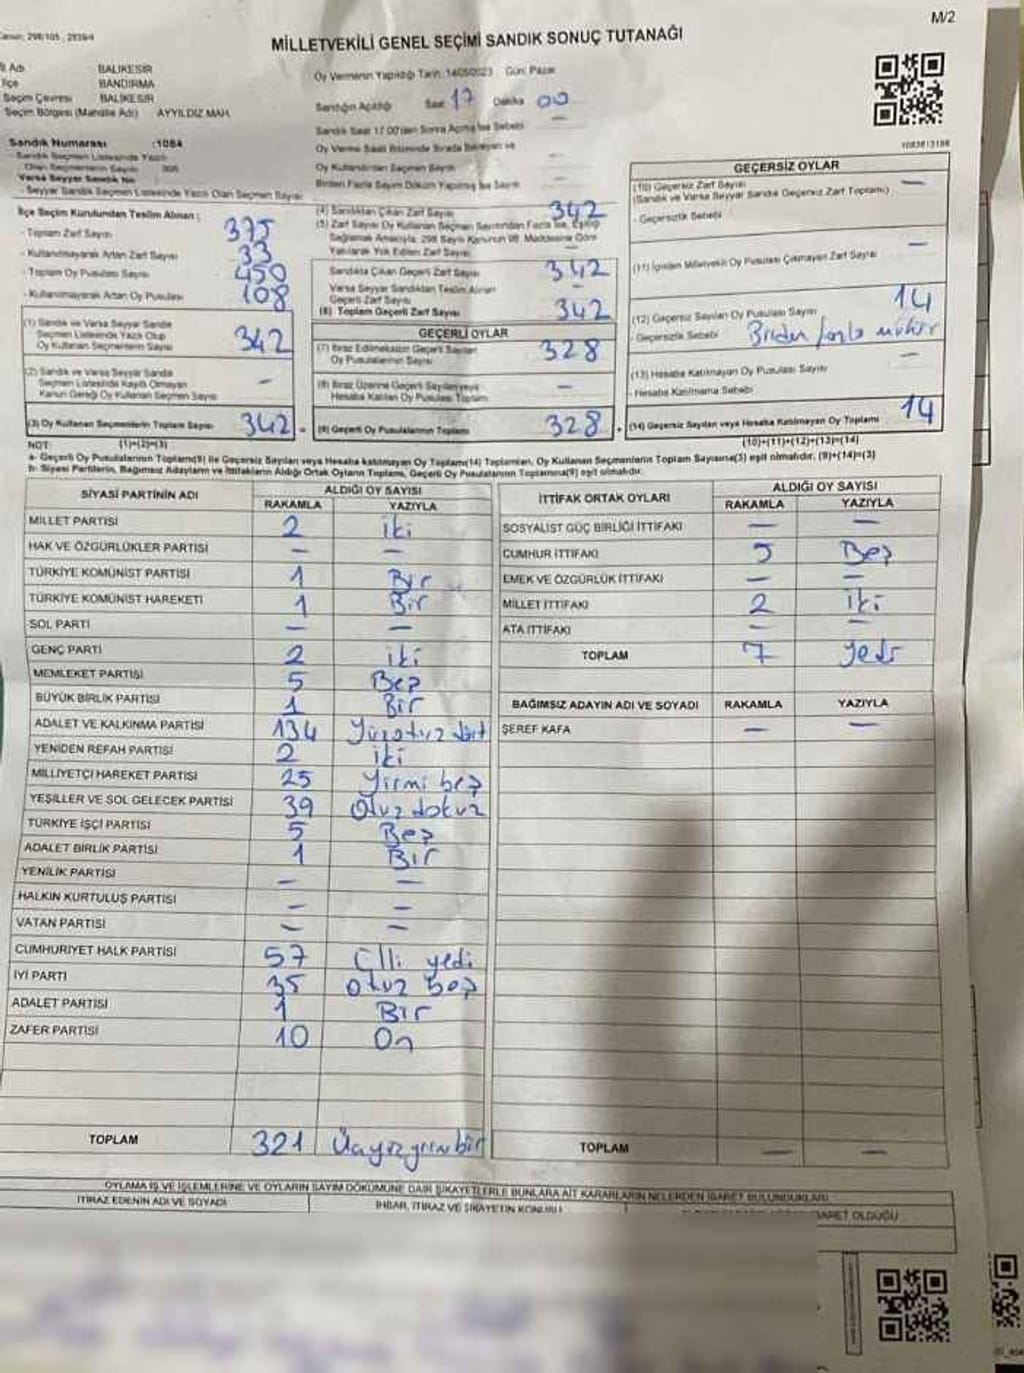 M/2
MİLLETVEKİLİ GENEL SEÇİMİ SANDIK SONUÇ TUTANAĞI
İl Adı BALIKESİR
İlçe BANDIRMA
Seçim Çevresi BALIKESİR
Seçim Bölgesi (Mahalle Adı) AYYILDIZ MAH.
Oy Vermenin Yapıldığı Tarih: 14/05/2023 Gün: Pazar
Sandığın Açıldığı Saat 17 Dakika 00
Sandık Saat 17.00'den Sonra Açılmış İse Sebebi —
Sandık Numarası :1084
Sandık Seçmen Listesinde Yazılı
Olan Seçmenlerin Sayısı
Varsa Seyyar Sandık No
Seyyar Sandık Seçmen Listesinde Yazılı Olan Seçmen Sayısı
Oy Verme Saati Bitiminde Sırada Bekleyen ve
Oy Kullandırılan Seçmen Sayısı —
Birden Fazla Sayım Döküm Yapılmış İse Sayısı —
İlçe Seçim Kurulundan Teslim Alınan :
- Toplam Zarf Sayısı 375
- Kullanılmayarak Artan Zarf Sayısı 33
- Toplam Oy Pusulası Sayısı 450
- Kullanılmayarak Artan Oy Pusulası 108
(1) Sandık ve Varsa Seyyar Sandık
Seçmen Listesinde Yazılı Olup
Oy Kullanan Seçmenlerin Sayısı 342
(2) Sandık ve Varsa Seyyar Sandık
Seçmen Listesinde Kayıtlı Olmayan
Kanun Gereği Oy Kullanan Seçmen Sayısı —
(3) Oy Kullanan Seçmenlerin Toplam Sayısı 342
(1)+(2)=(3)
(4) Sandıktan Çıkan Zarf Sayısı 342
(5) Zarf Sayısı Oy Kullanan Seçmen Sayısından Fazla İse, Eşitliği
Sağlamak Amacıyla, 298 Sayılı Kanunun 98. Maddesine Göre
Yakılarak Yok Edilen Zarf Sayısı —
Sandıkta Çıkan Geçerli Zarf Sayısı 342
Varsa Seyyar Sandıktan Teslim Alınan
Geçerli Zarf Sayısı —
(6) Toplam Geçerli Zarf Sayısı 342
GEÇERLİ OYLAR
(7) İtiraz Edilmeksizin Geçerli Sayılan
Oy Pusulalarının Sayısı 328
(8) İtiraz Üzerine Geçerli Sayılan veya
Hesaba Katılan Oy Pusulaları Toplamı —
(9) Geçerli Oy Pusulalarının Toplamı 328
GEÇERSİZ OYLAR
(10) Geçersiz Zarf Sayısı
(Sandık ve Varsa Seyyar Sandık Geçersiz Zarf Toplamı) —
- Geçersizlik Sebebi
(11) İçinden Milletvekili Oy Pusulası Çıkmayan Zarf Sayısı —
(12) Geçersiz Sayılan Oy Pusulası Sayısı 14
- Geçersizlik Sebebi Birden fazla mühür
(13) Hesaba Katılmayan Oy Pusulası Sayısı —
- Hesaba Katılmama Sebebi
(14) Geçersiz Sayılan veya Hesaba Katılmayan Oy Toplamı 14
(10)+(11)+(12)+(13)=(14)
NOT:
a- Geçerli Oy Pusulalarının Toplamı(9) ile Geçersiz Sayılan veya Hesaba katılmayan Oy Toplamı(14) Toplamları, Oy Kullanan Seçmenlerin Toplam Sayısına(3) eşit olmalıdır. (9)+(14)=(3)
b- Siyasi Partilerin, Bağımsız Adayların ve İttifakların Aldığı Ortak Oyların Toplamı, Geçerli Oy Pusulalarının Toplamına(9) eşit olmalıdır.
SİYASİ PARTİNİN ADI ALDIĞI OY SAYISI
RAKAMLA YAZIYLA
MİLLET PARTİSİ 2 iki
HAK VE ÖZGÜRLÜKLER PARTİSİ — —
TÜRKİYE KOMÜNİST PARTİSİ 1 Bir
TÜRKİYE KOMÜNİST HAREKETİ 1 Bir
SOL PARTİ — —
GENÇ PARTİ 2 iki
MEMLEKET PARTİSİ 5 Beş
BÜYÜK BİRLİK PARTİSİ 1 Bir
ADALET VE KALKINMA PARTİSİ 134 Yüzotuz dört
YENİDEN REFAH PARTİSİ 2 iki
MİLLİYETÇİ HAREKET PARTİSİ 25 Yirmi beş
YEŞİLLER VE SOL GELECEK PARTİSİ 39 Otuz dokuz
TÜRKİYE İŞÇİ PARTİSİ 5 Beş
ADALET BİRLİK PARTİSİ 1 Bir
YENİLİK PARTİSİ — —
HALKIN KURTULUŞ PARTİSİ — —
VATAN PARTİSİ — —
CUMHURİYET HALK PARTİSİ 57 Elli yedi
İYİ PARTİ 35 otuz beş
ADALET PARTİSİ 1 Bir
ZAFER PARTİSİ 10 On
TOPLAM 321
İTTİFAK ORTAK OYLARI ALDIĞI OY SAYISI
RAKAMLA YAZIYLA
SOSYALİST GÜÇ BİRLİĞİ İTTİFAKI — —
CUMHUR İTTİFAKI 5 Beş
EMEK VE ÖZGÜRLÜK İTTİFAKI — —
MİLLET İTTİFAKI 2 iki
ATA İTTİFAKI — —
TOPLAM 7 Yedi
BAĞIMSIZ ADAYIN ADI VE SOYADI RAKAMLA YAZIYLA
ŞEREF KAFA — —
TOPLAM — —
OYLAMA İŞ VE İŞLEMLERİNE VE OYLARIN SAYIM DÖKÜMÜNE DAİR ŞİKAYETLERLE BUNLARA AİT KARARLARIN NELERDEN İBARET BULUNDUKLARI
İTİRAZ EDENİN ADI VE SOYADI İHBAR, İTİRAZ VE ŞİKAYETİN KONUSU İBARET OLDUĞU